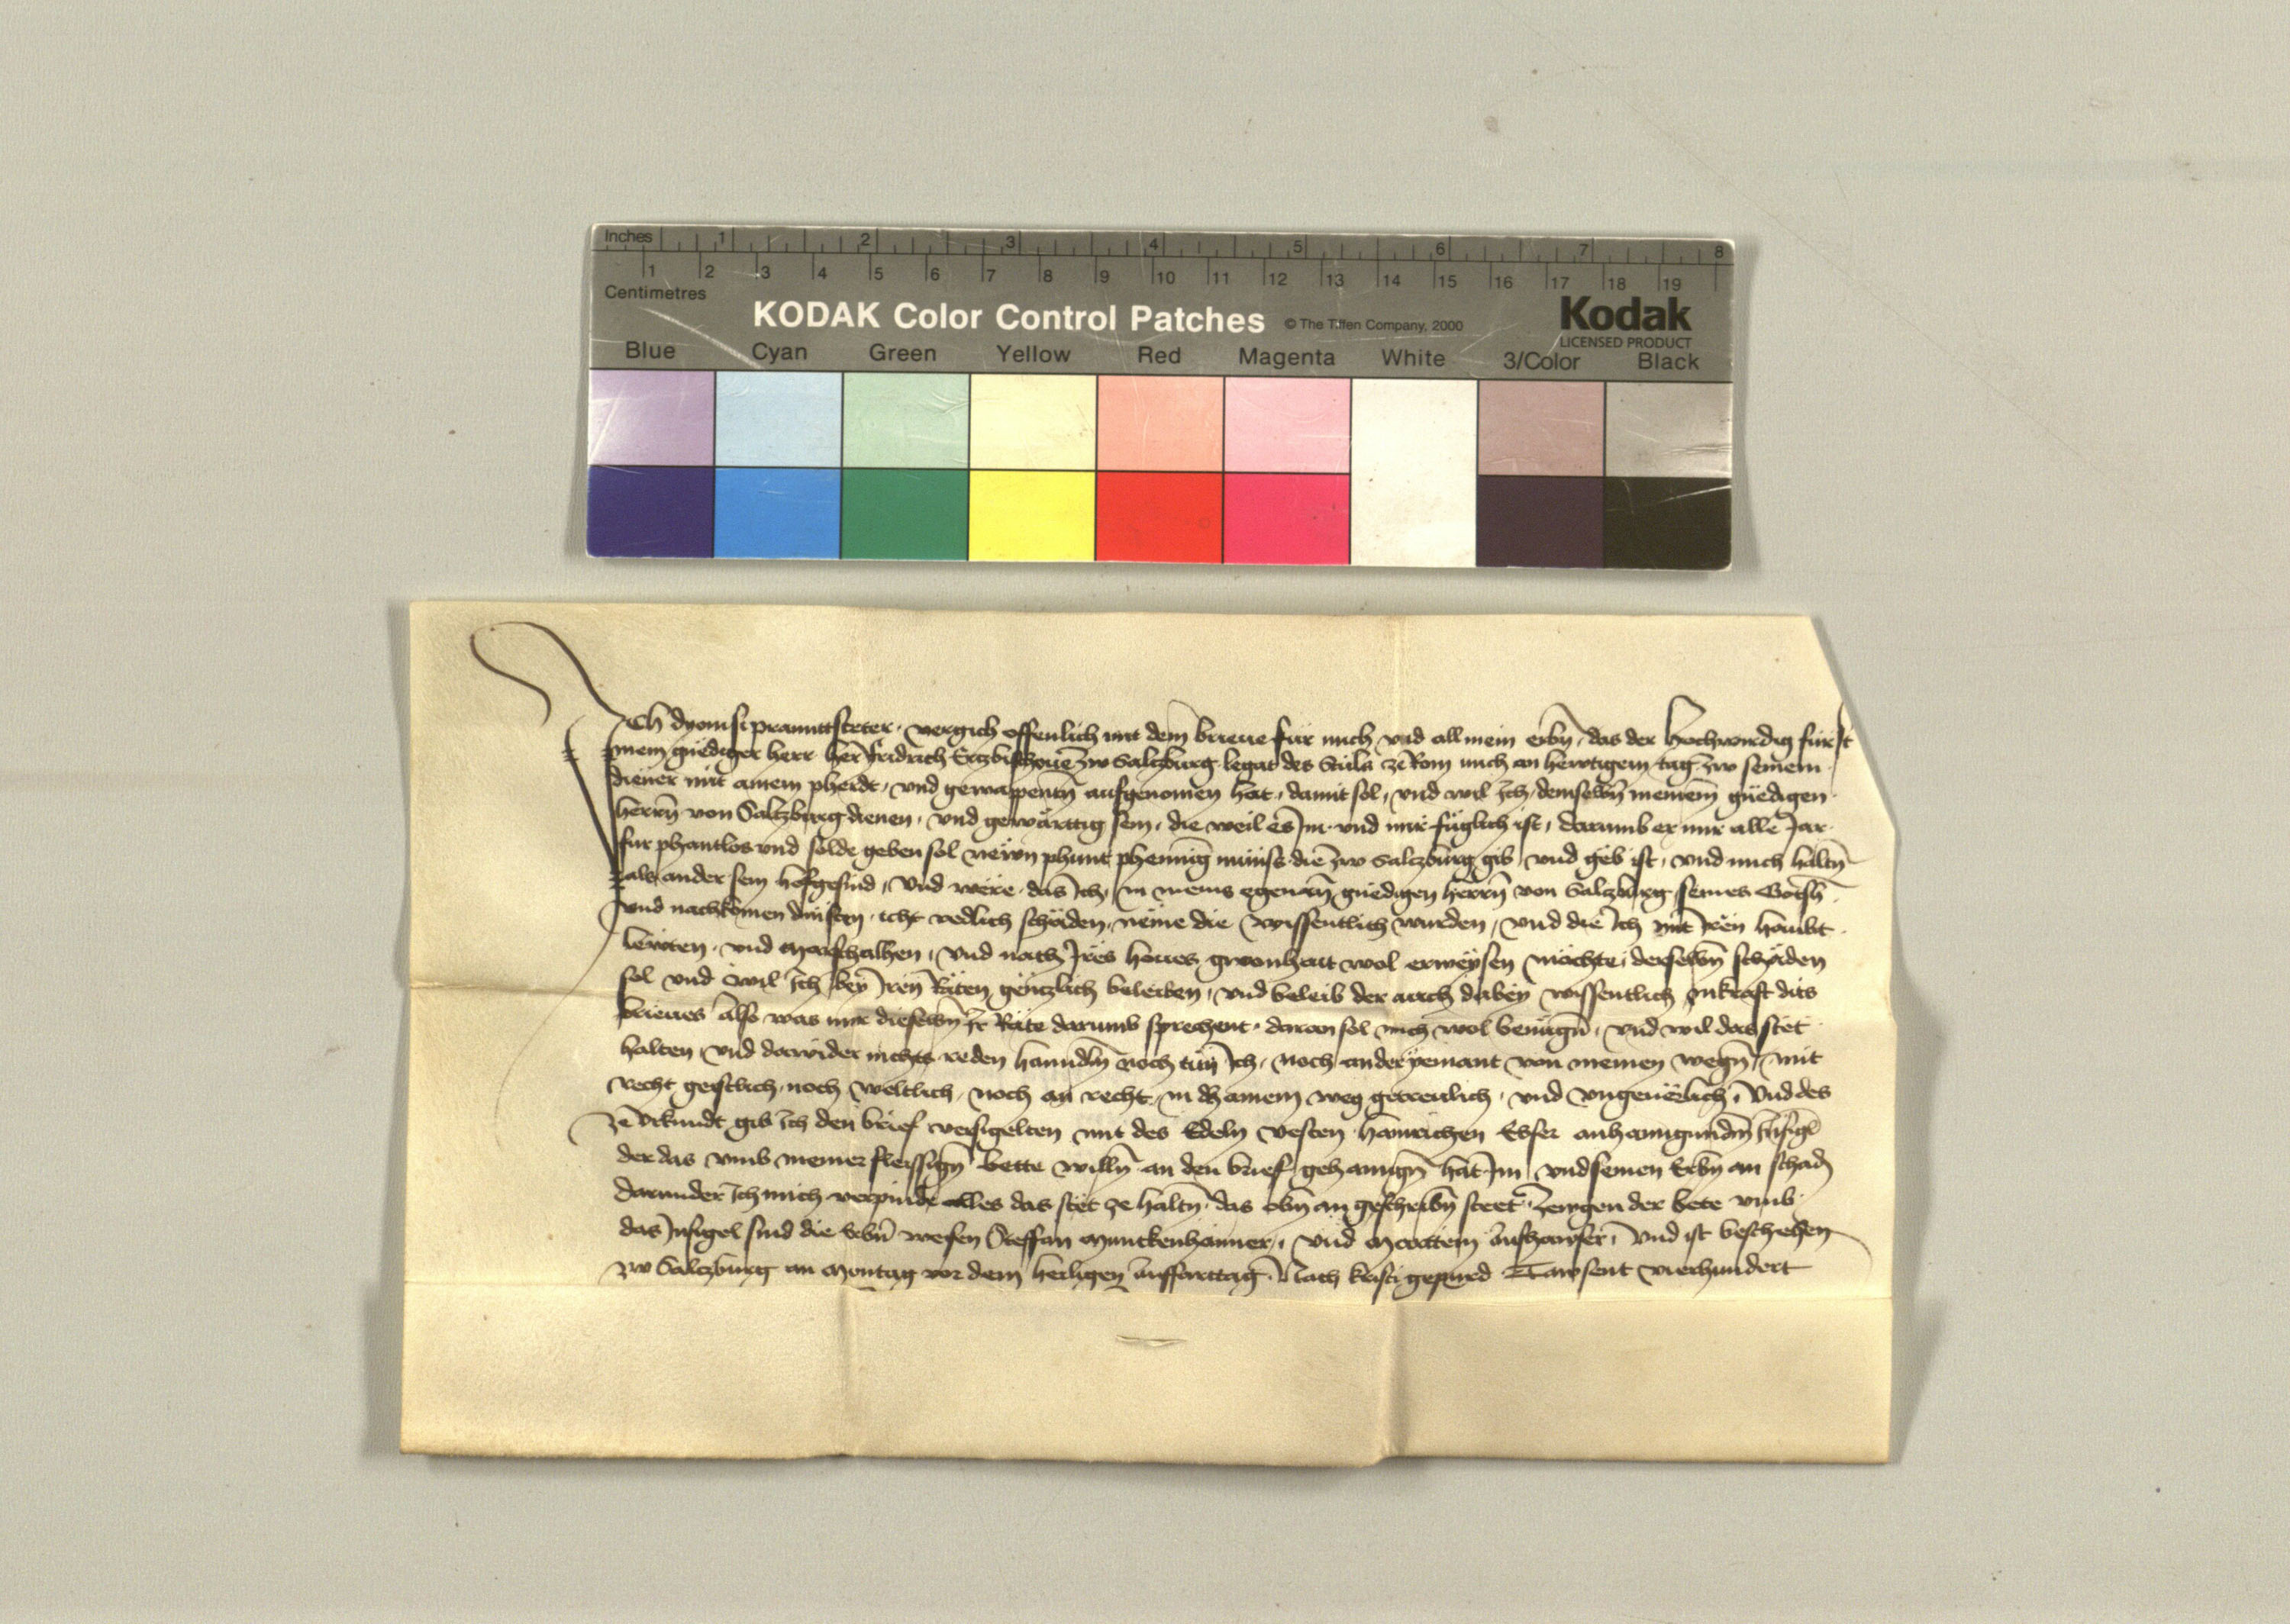 Inches 1 2 3 4 5 6 7 8
1 2 3 4 5 6 7 8 9 10 11 12 13 14 15 16 17 18 19
Centimetres
KODAK Color Control Patches © The Tiffen Company, 2000 Kodak
LICENSED PRODUCT
Blue Cyan Green Yellow Red Magenta White 3/Color Black
Ich dyonisi pranuttsteter vergich offenlich mit dem brieue für mich vnd all mein erbn̄ das der Hochwirdig fürst
mein gnëdiger herr her fridrich Ertzbischoue zw Salczburg legat des Stuls ze Rom mich an hewtigem tag zw seinem
diener mit ainem pherdt vnd gewappentn̄ aufgenomen hat damit sol vnd wil Ich demselbn̄ meinem gnëdigen
herrn̄ von Salczburg dienen vnd gewärttig sein die weil es Im vnd mir füglich ist darumb er mir alle Jar
fur phantlos vnd solde geben sol newn phunt phennig münse die zw Salczburg gib vnd gëb ist vnd mich haltn̄
als ander sein hofgesind vnd wëre das Ich in meins egenan̄ gnedigen herrn̄ von Salczburg seines Gotsh̄
vnd nachkomen dinsten icht redlich schäden nëme die wissentlich wurden vnd die Ich mit Iren haubt
lewten vnd Marschalhen vnd nach Ires houes gwonhait wol erweysen möchte derselbn̄ schäden
sol vnd wil Ich bey Iren Räten gëntzlich beleiben vnd beleib der auch dabey wissentlich in kraft dits
brieues also was mir dieselbn̄ Ir Räte darumb sprechent daran sol mich wol benügn̄ vnd wil das stët
halten vnd dawider nichts reden hanndln̄ noch tun Ich noch ander yemant von meinen wegn̄ mit
recht geistlich noch weltlich noch an recht in dhainem weg getreulich vnd vngeuërlich Vnd des
ze vrkundt gib Ich den brief versigelten mit des Edeln vesten hainrichen anhanngundm̄ Insigl̄
der das vmb meiner fleissign̄ bette willn̄ an den brief gehanngn̄ hat Im vnd seinen Erbn̄ an schadn̄
darunder Ich mich verpinde alles das stët ze haltn̄ das obn̄ an geschribn̄ steet Zewgen der bete vmb
das Insigel sind die Erbn̄ weisen Steffan vnd Ist beschehen
zw Salczburg an Montag vor dem heiligen auffarttag Nach kristi gepurd Tawsent vierhundert